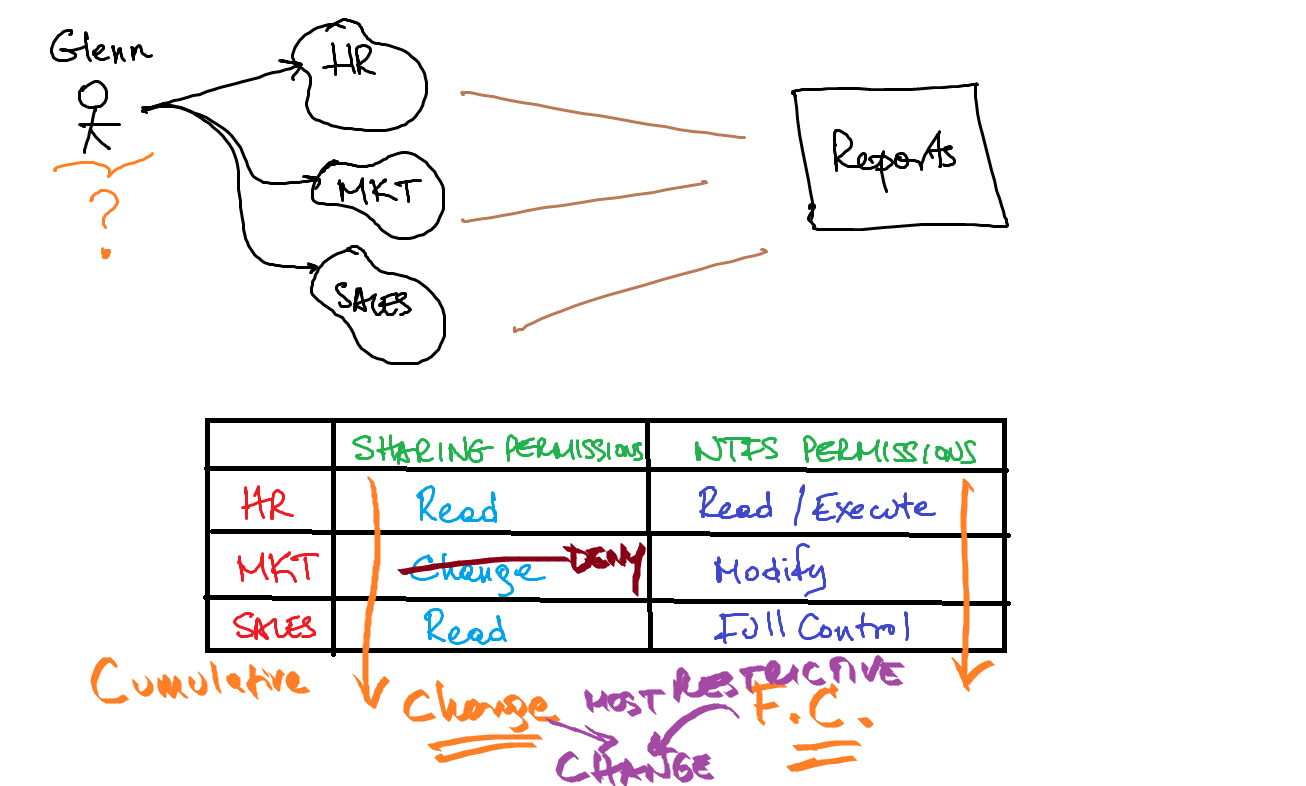 Glenn
HR
?
MKT
SALES
Reports
SHARING PERMISSIONS NTFS PERMISSIONS
HR Read Read / Execute
MKT Change DENY Modify
SALES Read Full Control
Cumulative Change MOST RESTRICTIVE F.C.
CHANGE